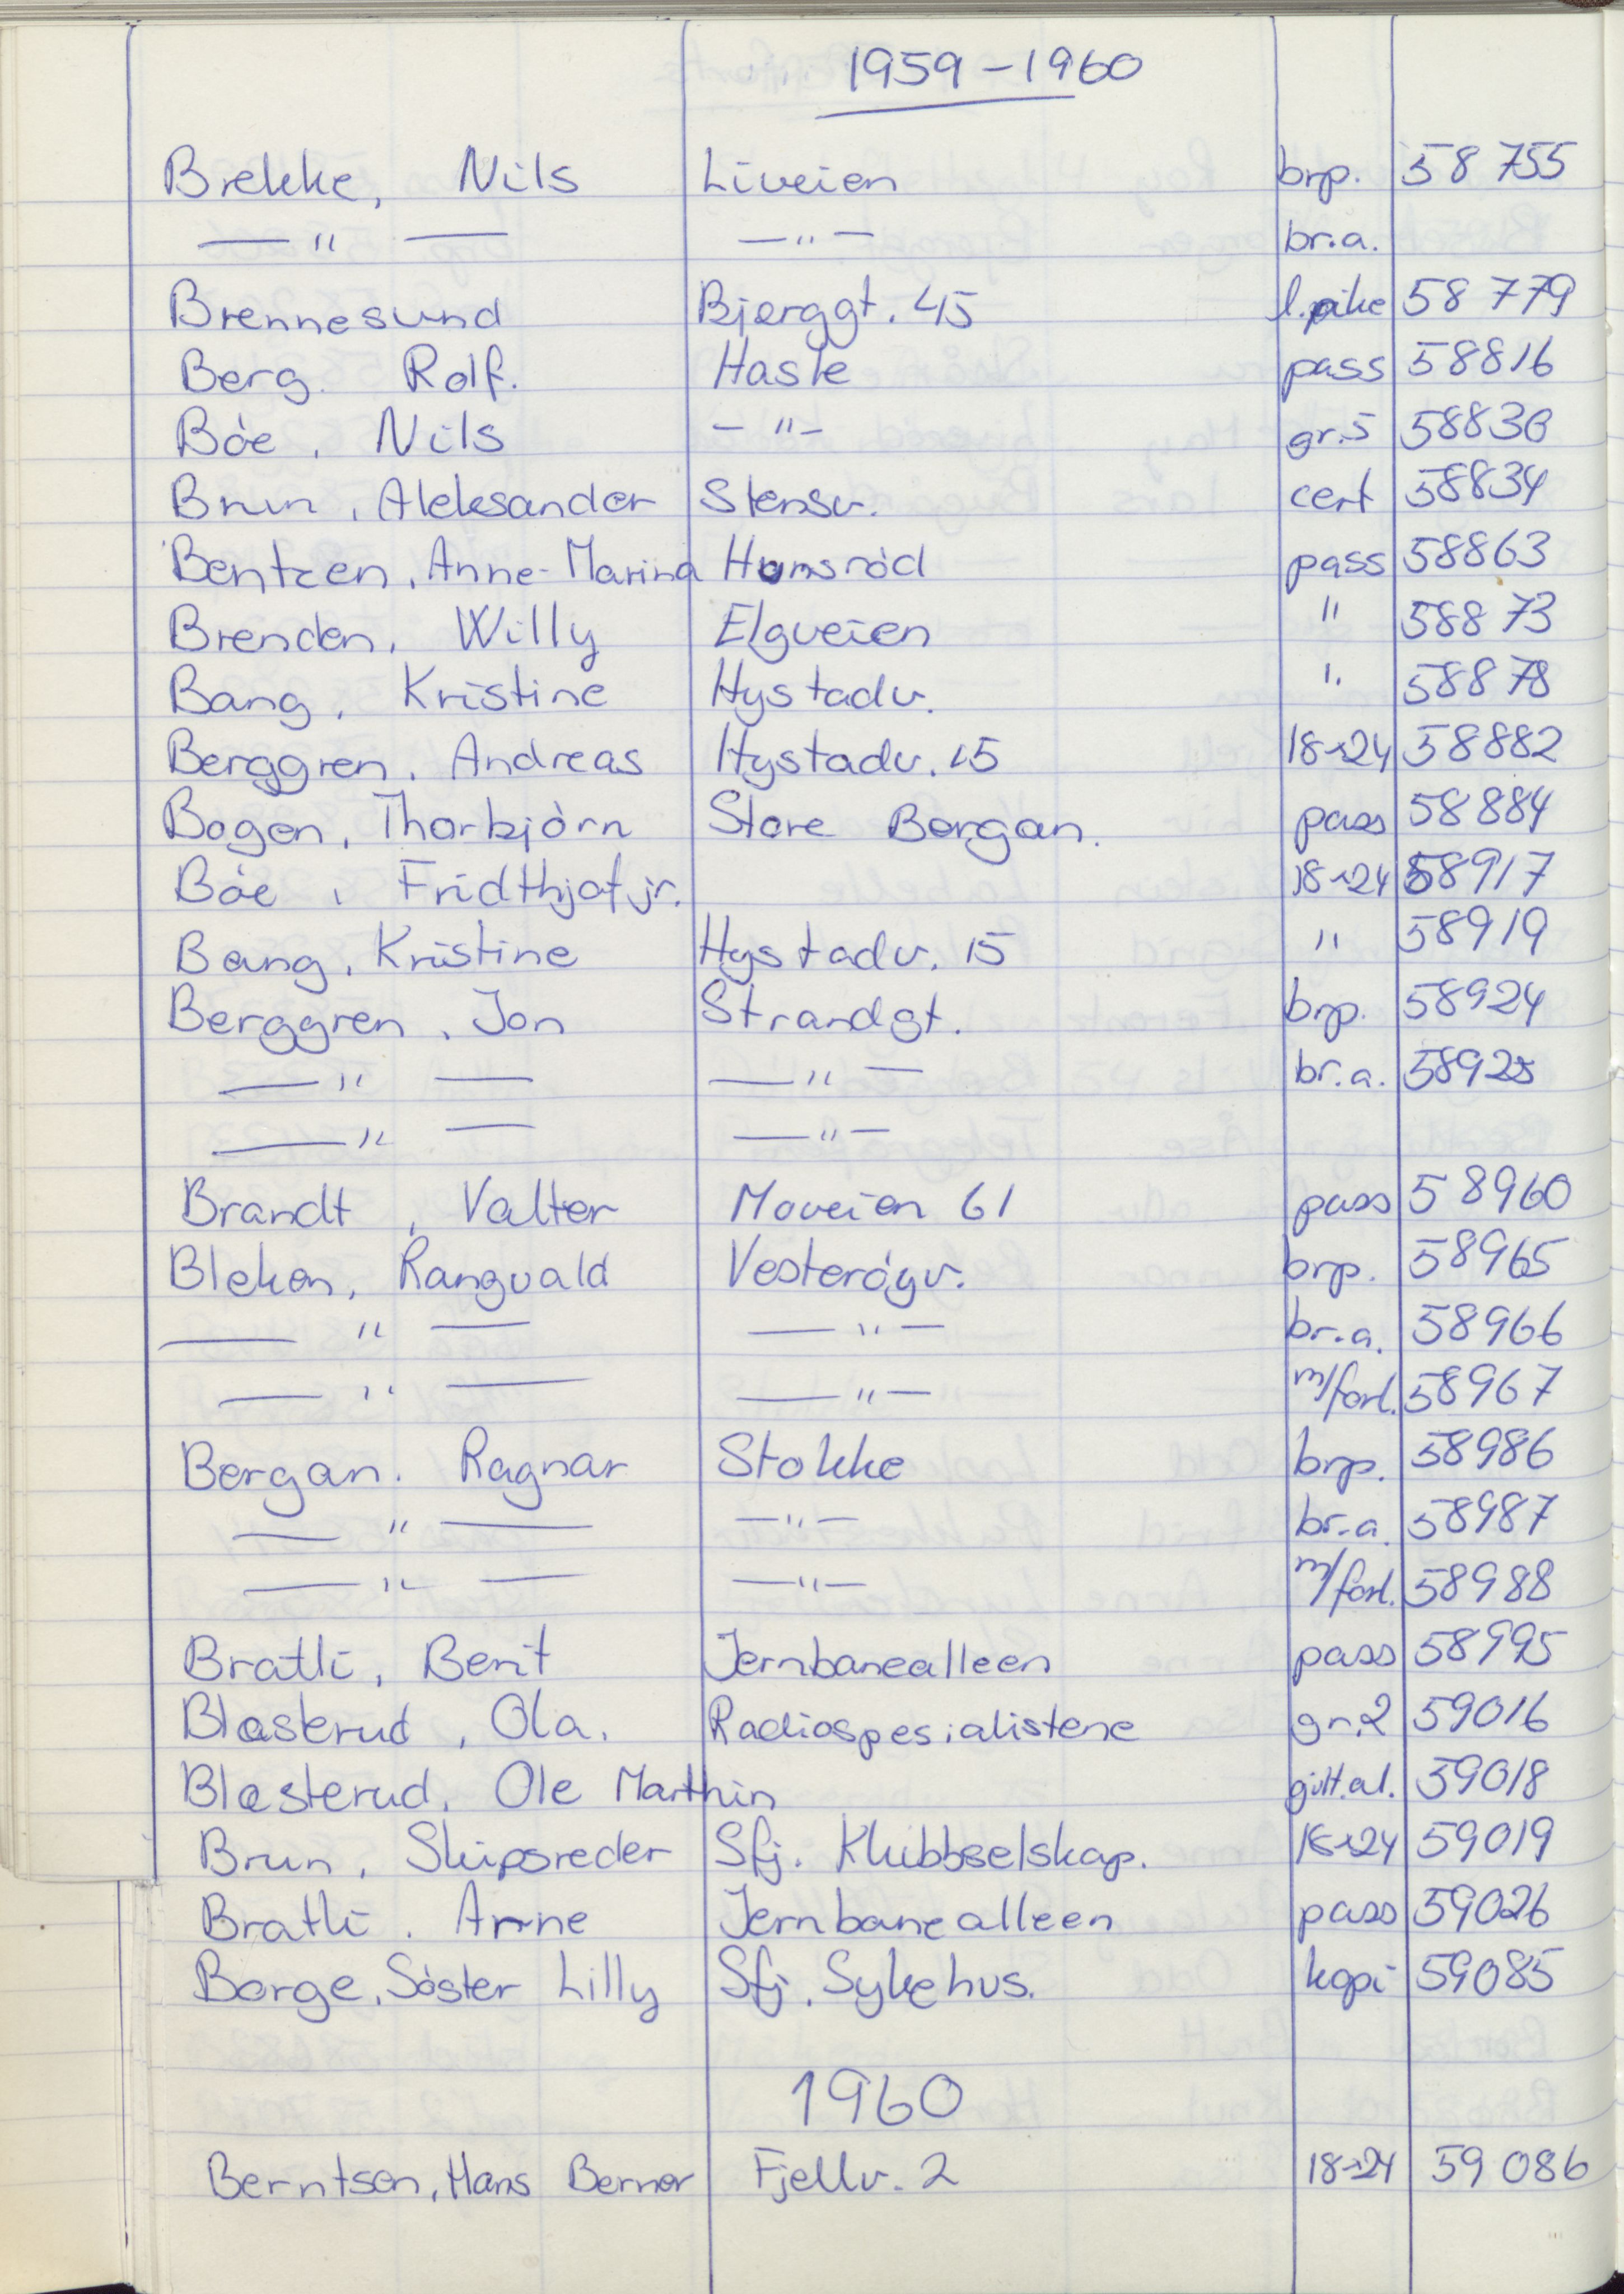 1959 – 1960
Brekke, Nils Liveien brp. 58 755
— " — — " — br.a.
Brennesund Bjerggt. 45 l.pike 58 779
Berg. Rolf. Hasle pass 58816
Bóe, Nils — " — gr.5 58830
Brun, Aleksander Stensv. cert 58834
Bentzen, Anne-Marina Humsród pass 58863
Brenden, Willy Elgveien " 58873
Bang, Kristine Hystadv. " 58878
Berggren, Andreas Hystadv. 15 18x24 58882
Bogen, Thorbjórn Store Bergan. pass 58884
Bóe, Fridthjof jr. 18x24 58917
Bang, Kristine Hystadv. 15 " 58919
Berggren, Jon Strandgt. brp. 58924
— " — — " — br.a. 58925
— " — — " —
Brandt, Valter Moveien 61 pass 58960
Bleken, Rangvald Vesteróyv. brp. 58965
— " — — " — br.a. 58966
— " — — " — m/forl. 58967
Bergan. Ragnar Stokke brp. 58986
— " — — " — br.a. 58987
— " — — " — m/forl. 58988
Bratli, Berit Jernbanealleen pass 58995
Blasterud, Ola. Radiospesialistene gr.2 59016
Blasterud, Ole Marthin 59018
Brun, Skipsreder Sfj. Klubbselskap. 18x24 59019
Bratli. Arne Jernbanealleen pass 59026
Borge, Sóster Lilly Sfj. Sykehus. kopi 59085
1960
Berntsen, Hans Berner Fjellv. 2 18x24 59 086